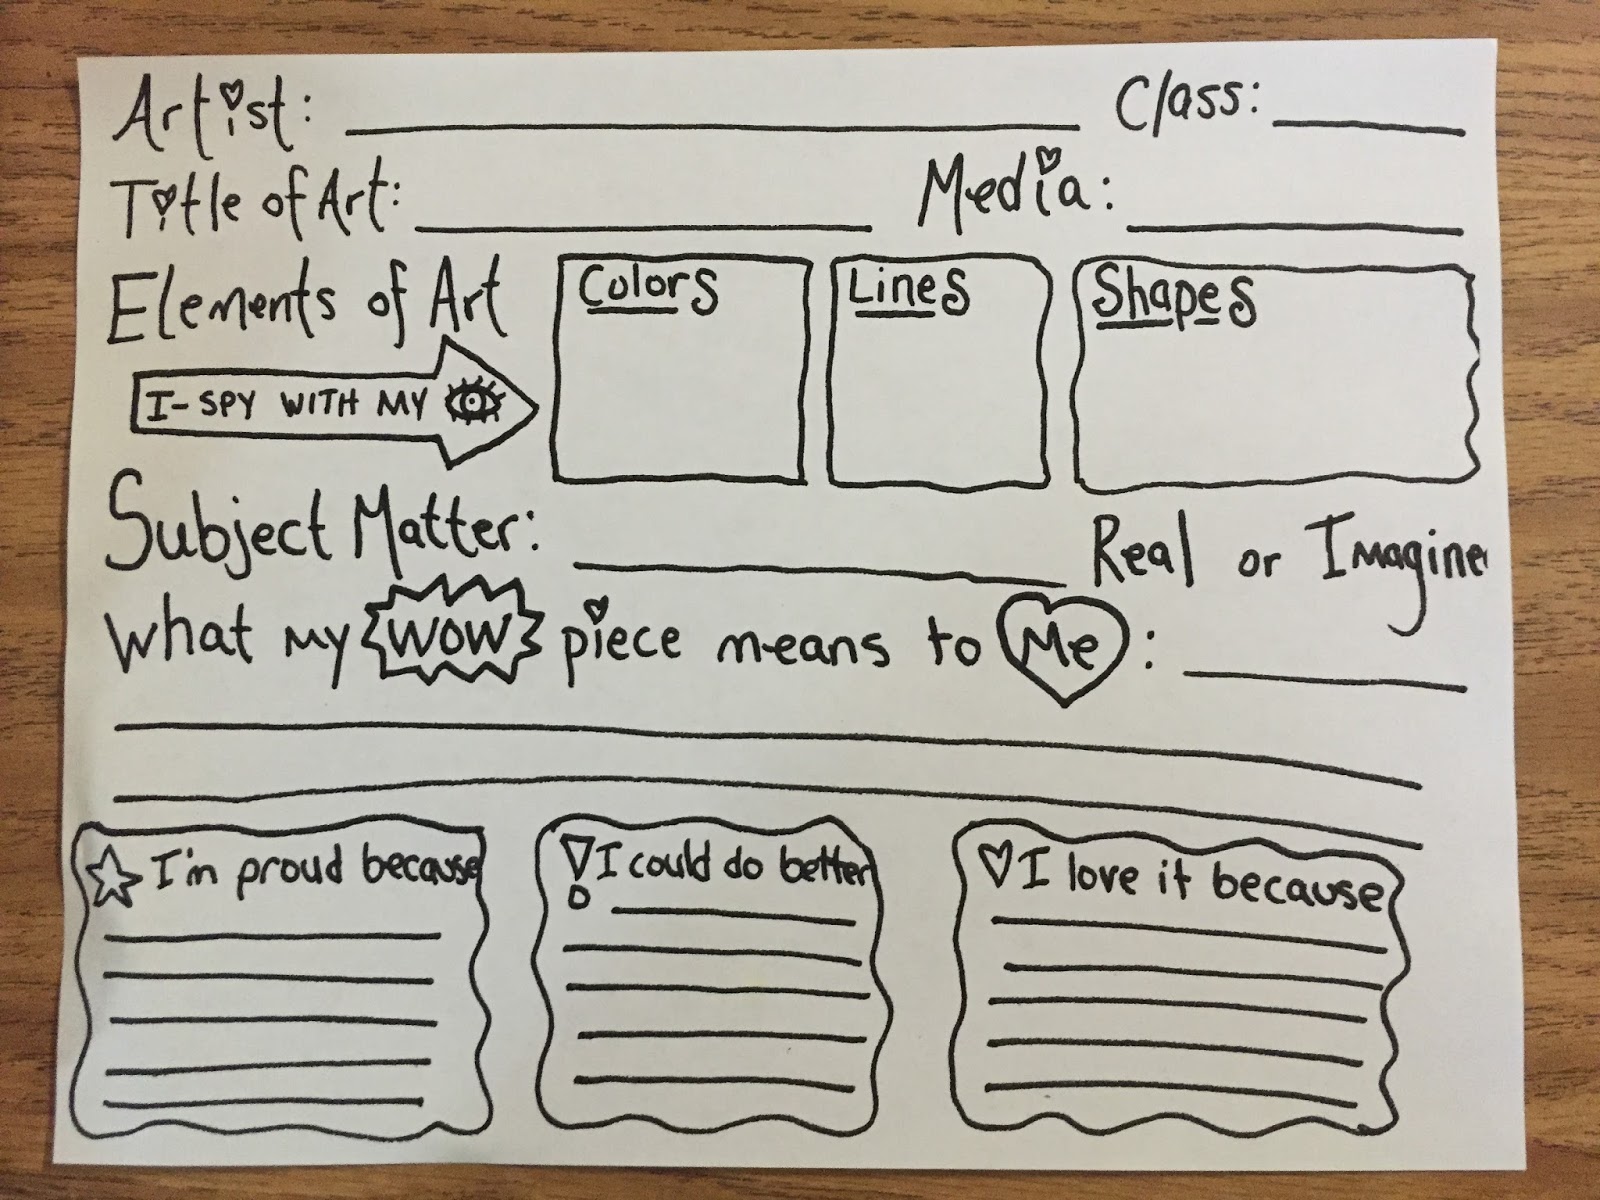 Artist: Class:
Title of Art: Media:
Elements of Art Colors Lines Shapes
I-SPY WITH MY
Subject Matter: Real or Imagine
What my WOW piece means to Me:
I'm proud because I could do better I love it because